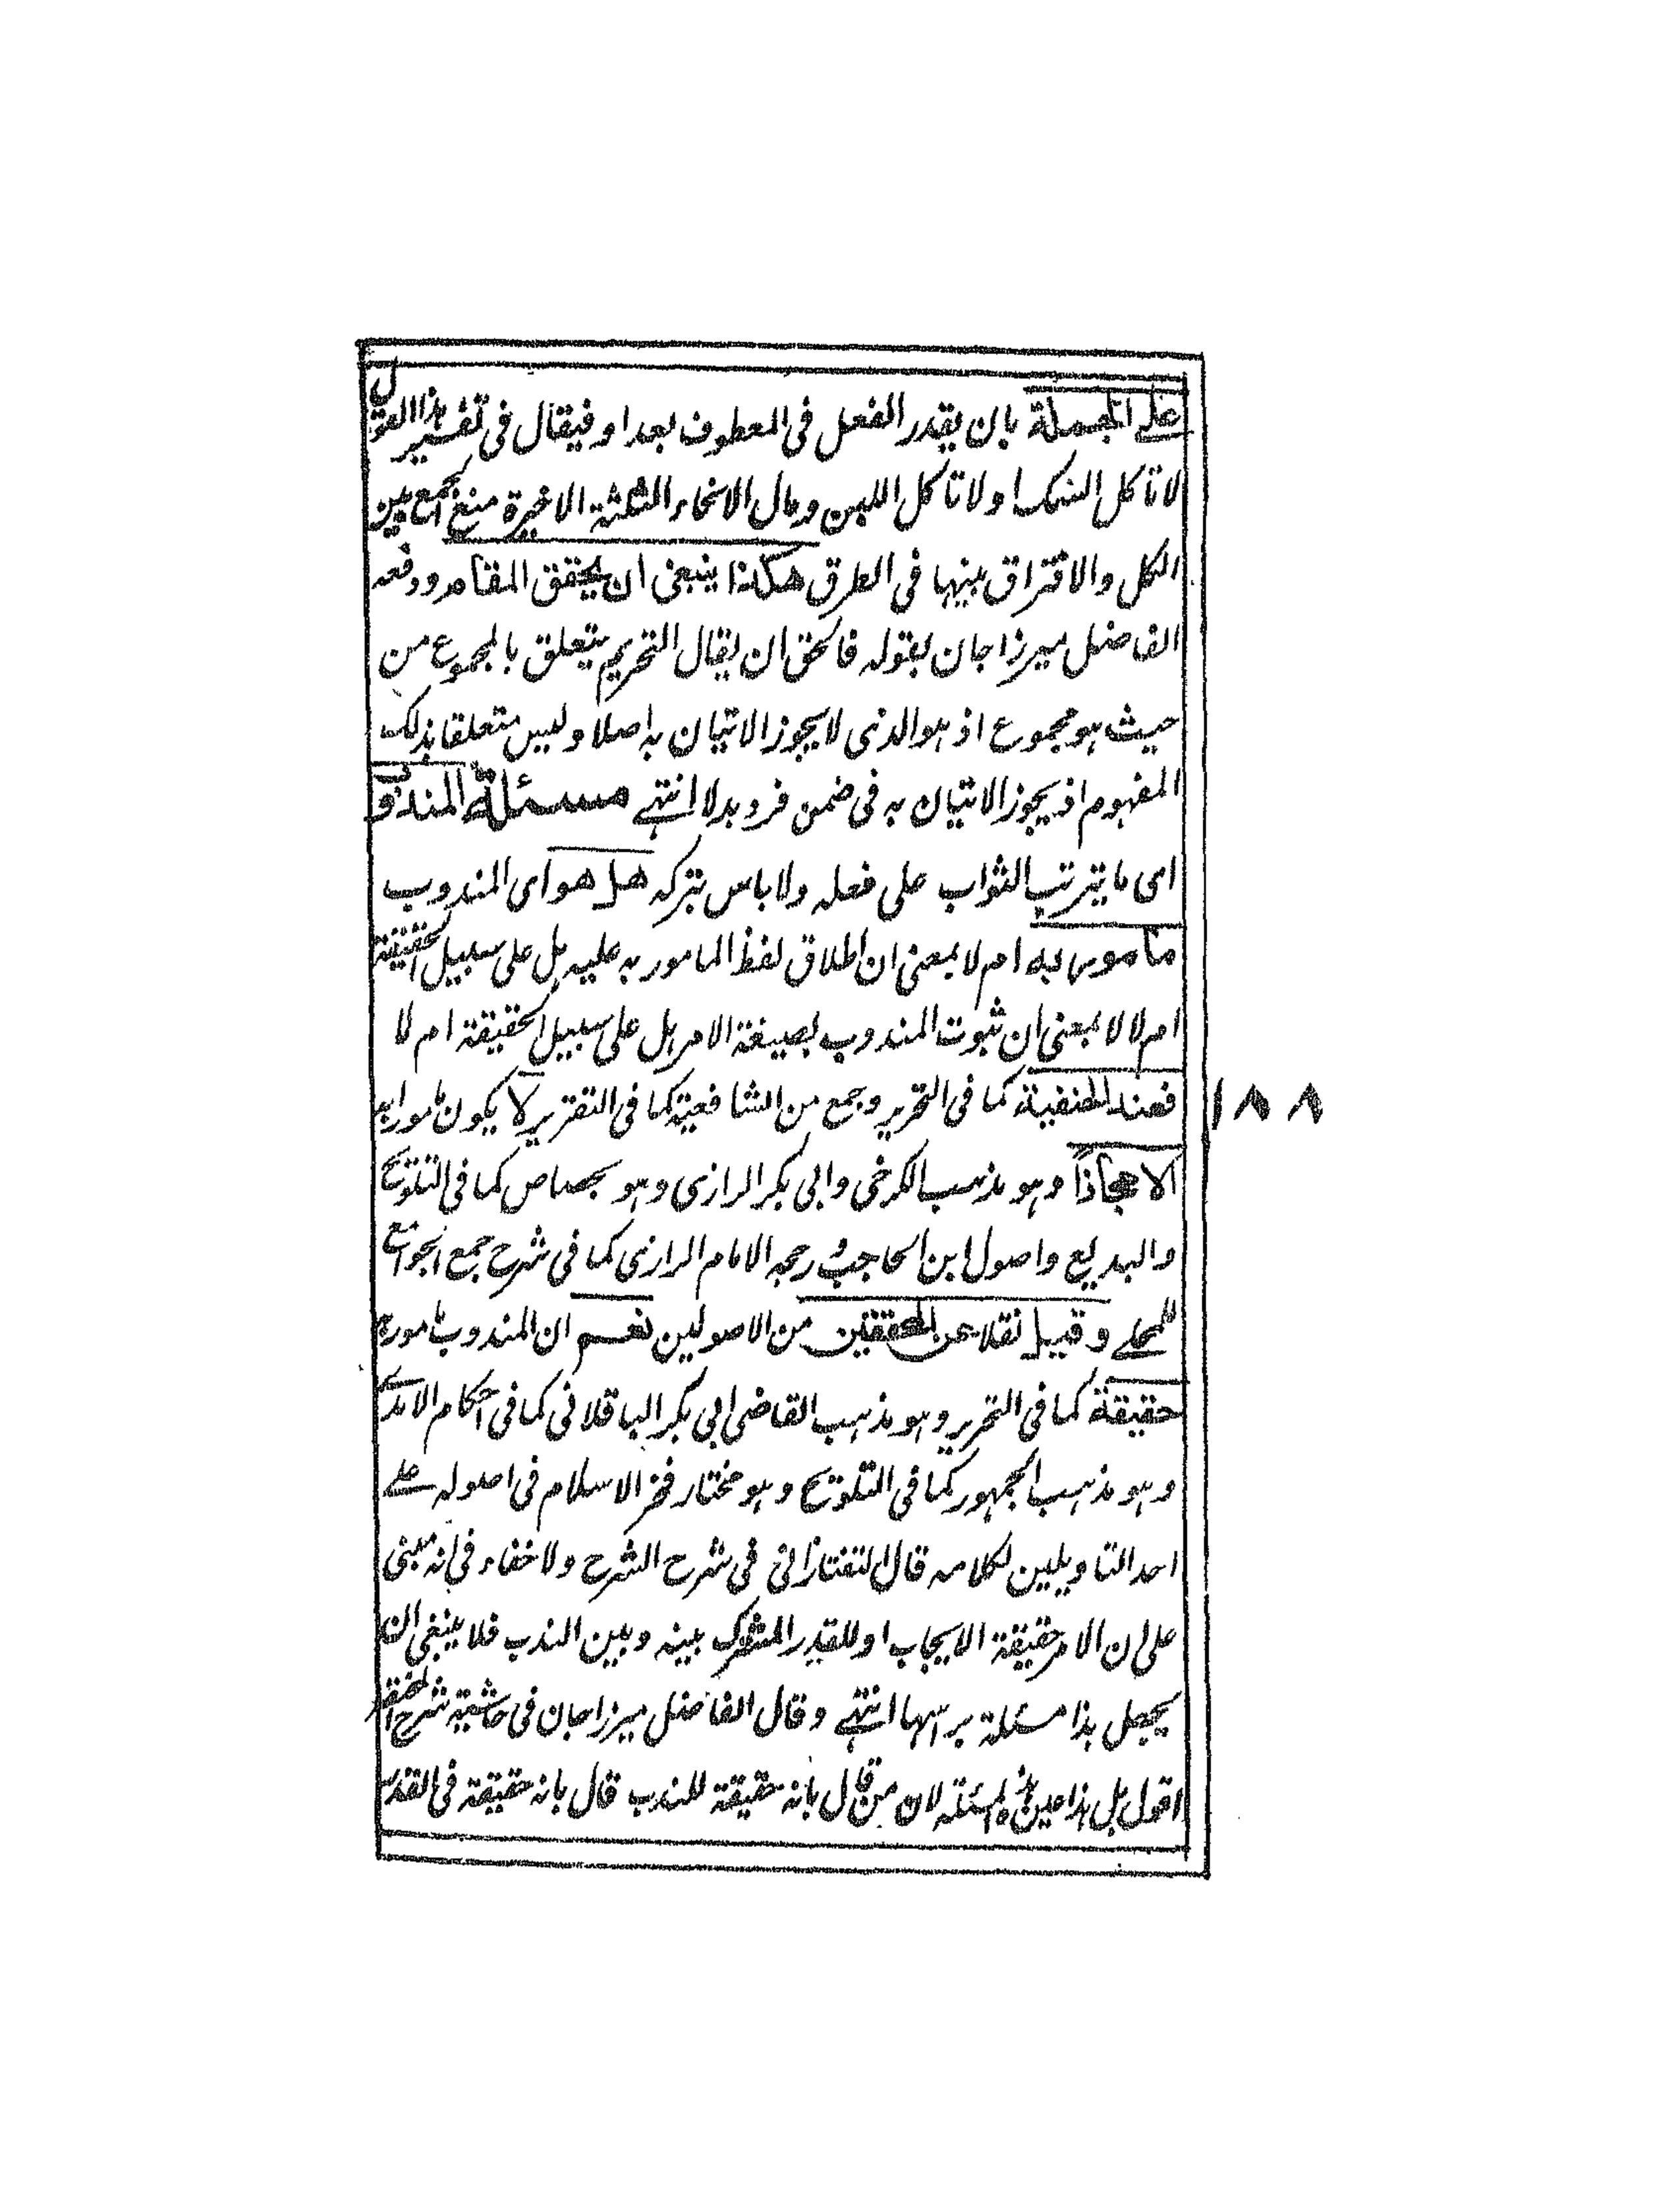 على الجملة بان يقدر الفعل فى المعطوف بعد او فيقال فى تفسير هذا القول
لا تاكل السمك او لا تاكل اللبن ومال الانحاء الثلثة الاخيرة منع الجمع بين
الكل والافتراق بينها فى الطرق هكذا ينبغى ان يحقق المقام ودفعه
الفاضل ميرزا جان بقوله فالحق ان يقال التحريم يتعلق بالمجموع من
حيث هو مجموع اذ هو الذى لا يجوز الاتيان به اصلا وليس متعلقا بذلك
المفهوم اذ يجوز الاتيان به فى ضمن فرد بدلا انتهى مسئلة المندوب
اى ما يترتب الثواب على فعله ولا باس بتركه هل هو اى المندوب
مامور به ام لا بمعنى ان اطلاق لفظ المامور به عليه هل على سبيل الحقيقة
ام لا لا بمعنى ان ثبوت المندوب بصيغة الامر هل على سبيل الحقيقة ام لا
فعند الحنفية كما فى التحرير وجمع من الشافعية كما فى التقرير لا يكون مامورا به
الا مجازا وهو مذهب الكرخى وابى بكر الرازى وهو بجصاص كما فى التلويح
والبديع واصول ابن الحاجب ورجحه الامام الرازى كما فى شرح جمع الجوامع
للمحلى وقيل نقلا عن المحققين من الاصوليين نعم ان المندوب مامور به
حقيقة كما فى التحرير وهو مذهب القاضى ابى بكر الباقلانى كما فى احكام الامدى
وهو مذهب الجمهور كما فى التلويح وهو مختار فخر الاسلام فى اصوله على
احد التاويلين لكلامه قال التفتازانى فى شرح الشرح ولا خفاء فى انه مبنى
على ان الامر حقيقة الايجاب او للقدر المشترك بينه وبين الندب فلا ينبغى ان
يجعل هذا مسئلة براسها انتهى وقال الفاضل ميرزا جان فى حاشية شرح المختصر
اقول بل هذا عين هذه المسئلة لان من قال بانه حقيقة للندب قال بانه حقيقة فى القدر
١٨٨